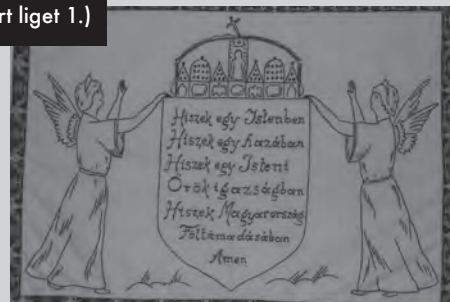 rt liget 1.)
Hiszek egy Istenben
Hiszek egy hazában
Hiszek egy Isteni
Örök igazságban
Hiszek Magyarország
Föltámadásában
Amen